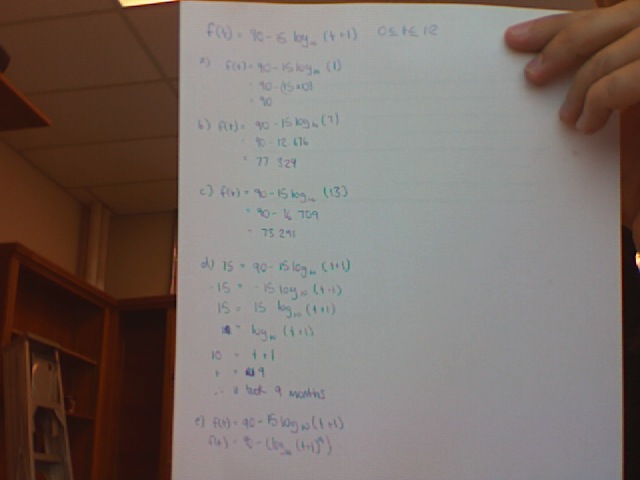 f(t) = 90 - 15 log₁₀ (t+1) 0 ≤ t ≤ 12
a) f(t) = 90 - 15 log₁₀ (1)
= 90 - (15×0)
= 90
b) f(t) = 90 - 15 log₁₀ (7)
= 90 - 12.676
= 77.324
c) f(t) = 90 - 15 log₁₀ (13)
= 90 - 16.709
= 73.291
d) 75 = 90 - 15 log₁₀ (t+1)
-15 = -15 log₁₀ (t+1)
15 = 15 log₁₀ (t+1)
1 = log₁₀ (t+1)
10 = t+1
t = 9
∴ it took 9 months
e) f(t) = 90 - 15 log₁₀ (t+1)
f(t) = 90 - (log₁₀ (t+1)